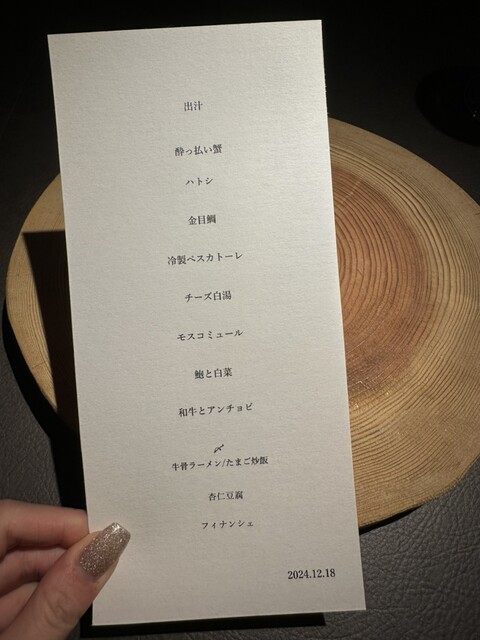 出汁
酔っ払い蟹
ハトシ
金目鯛
冷製ペスカトーレ
チーズ白湯
モスコミュール
鮑と白菜
和牛とアンチョビ
〆
牛骨ラーメン/たまご炒飯
杏仁豆腐
フィナンシェ
2024.12.18